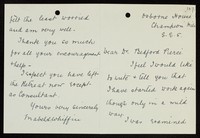 Osborne House
Champion
S.E.5.
Dear Dr. Bedford Pierce
I feel I would like
to write & tell you that
I have started work again
though only in a small
way.
I was examined
felt the least worried
and am very well.
Thank you so much
for all your encouragement
& help.
I expect you have left
the Retreat now except
as Consultant.
Yours very sincerely